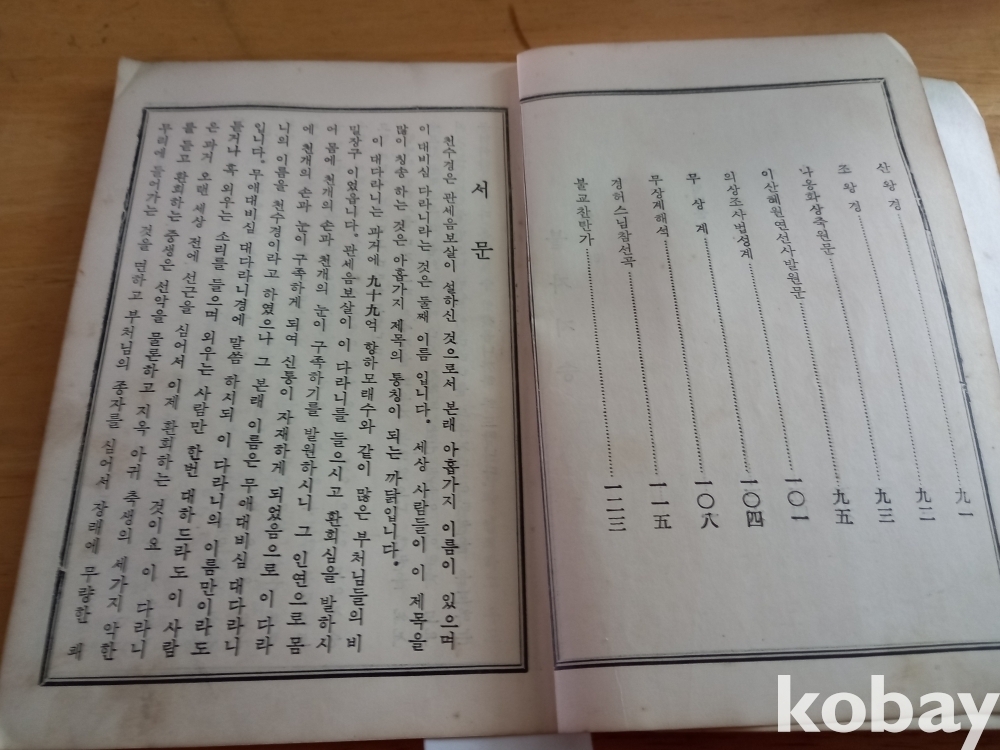 산 왕 경……………九一
조 왕 경……………九二
나옹화상축원문……………九三
이산혜원연선사발원문……………九五
의상조사법성계……………一〇一
무 상 계……………一〇四
무상계해석……………一〇八
경허스님참선곡……………一一五
불교찬탄가……………一二三
서 문
천수경은 관세음보살이 설하신 것으로서 본래 아홉가지 이름이 있으며
이 대비심 다라니라는 것은 둘째 이름 입니다. 세상 사람들이 이 제목을
많이 칭송 하는 것은 아홉가지 제목의 통칭이 되는 까닭입니다.
이 대다라니는 과거에 九十九억 항하모래수와 같이 많은 부처님들의 비
밀장구 이었읍니다. 관세음보살이 이 다라니를 들으시고 환희심을 발하시
어 몸에 천개의 손과 천개의 눈이 구족하기를 발원하시니 그 인연으로 몸
에 천개의 손과 눈이 구족하게 되여 신통이 자재하게 되었음으로 이 다라
니의 이름을 천수경이라고 하였으나 그 본래 이름은 무애대비심 대다라니
입니다. 무애대비심 대다라니경에 말씀 하시되 이 다라니의 이름만이라도
듣거나 혹 외우는 소리를 들으며 외우는 사람만 한번 대하드라도 이 사람
은 과거 오랜 세상 전에 선근을 심어서 이제 환희하는 것이요 이 다라니
를 듣고 환희하는 중생은 선악을 물론하고 지옥 아귀 축생의 세가지 악한
무리에 들어가는 것을 면하고 부처님의 종자를 심어서 장래에 무량한 쾌
kobay